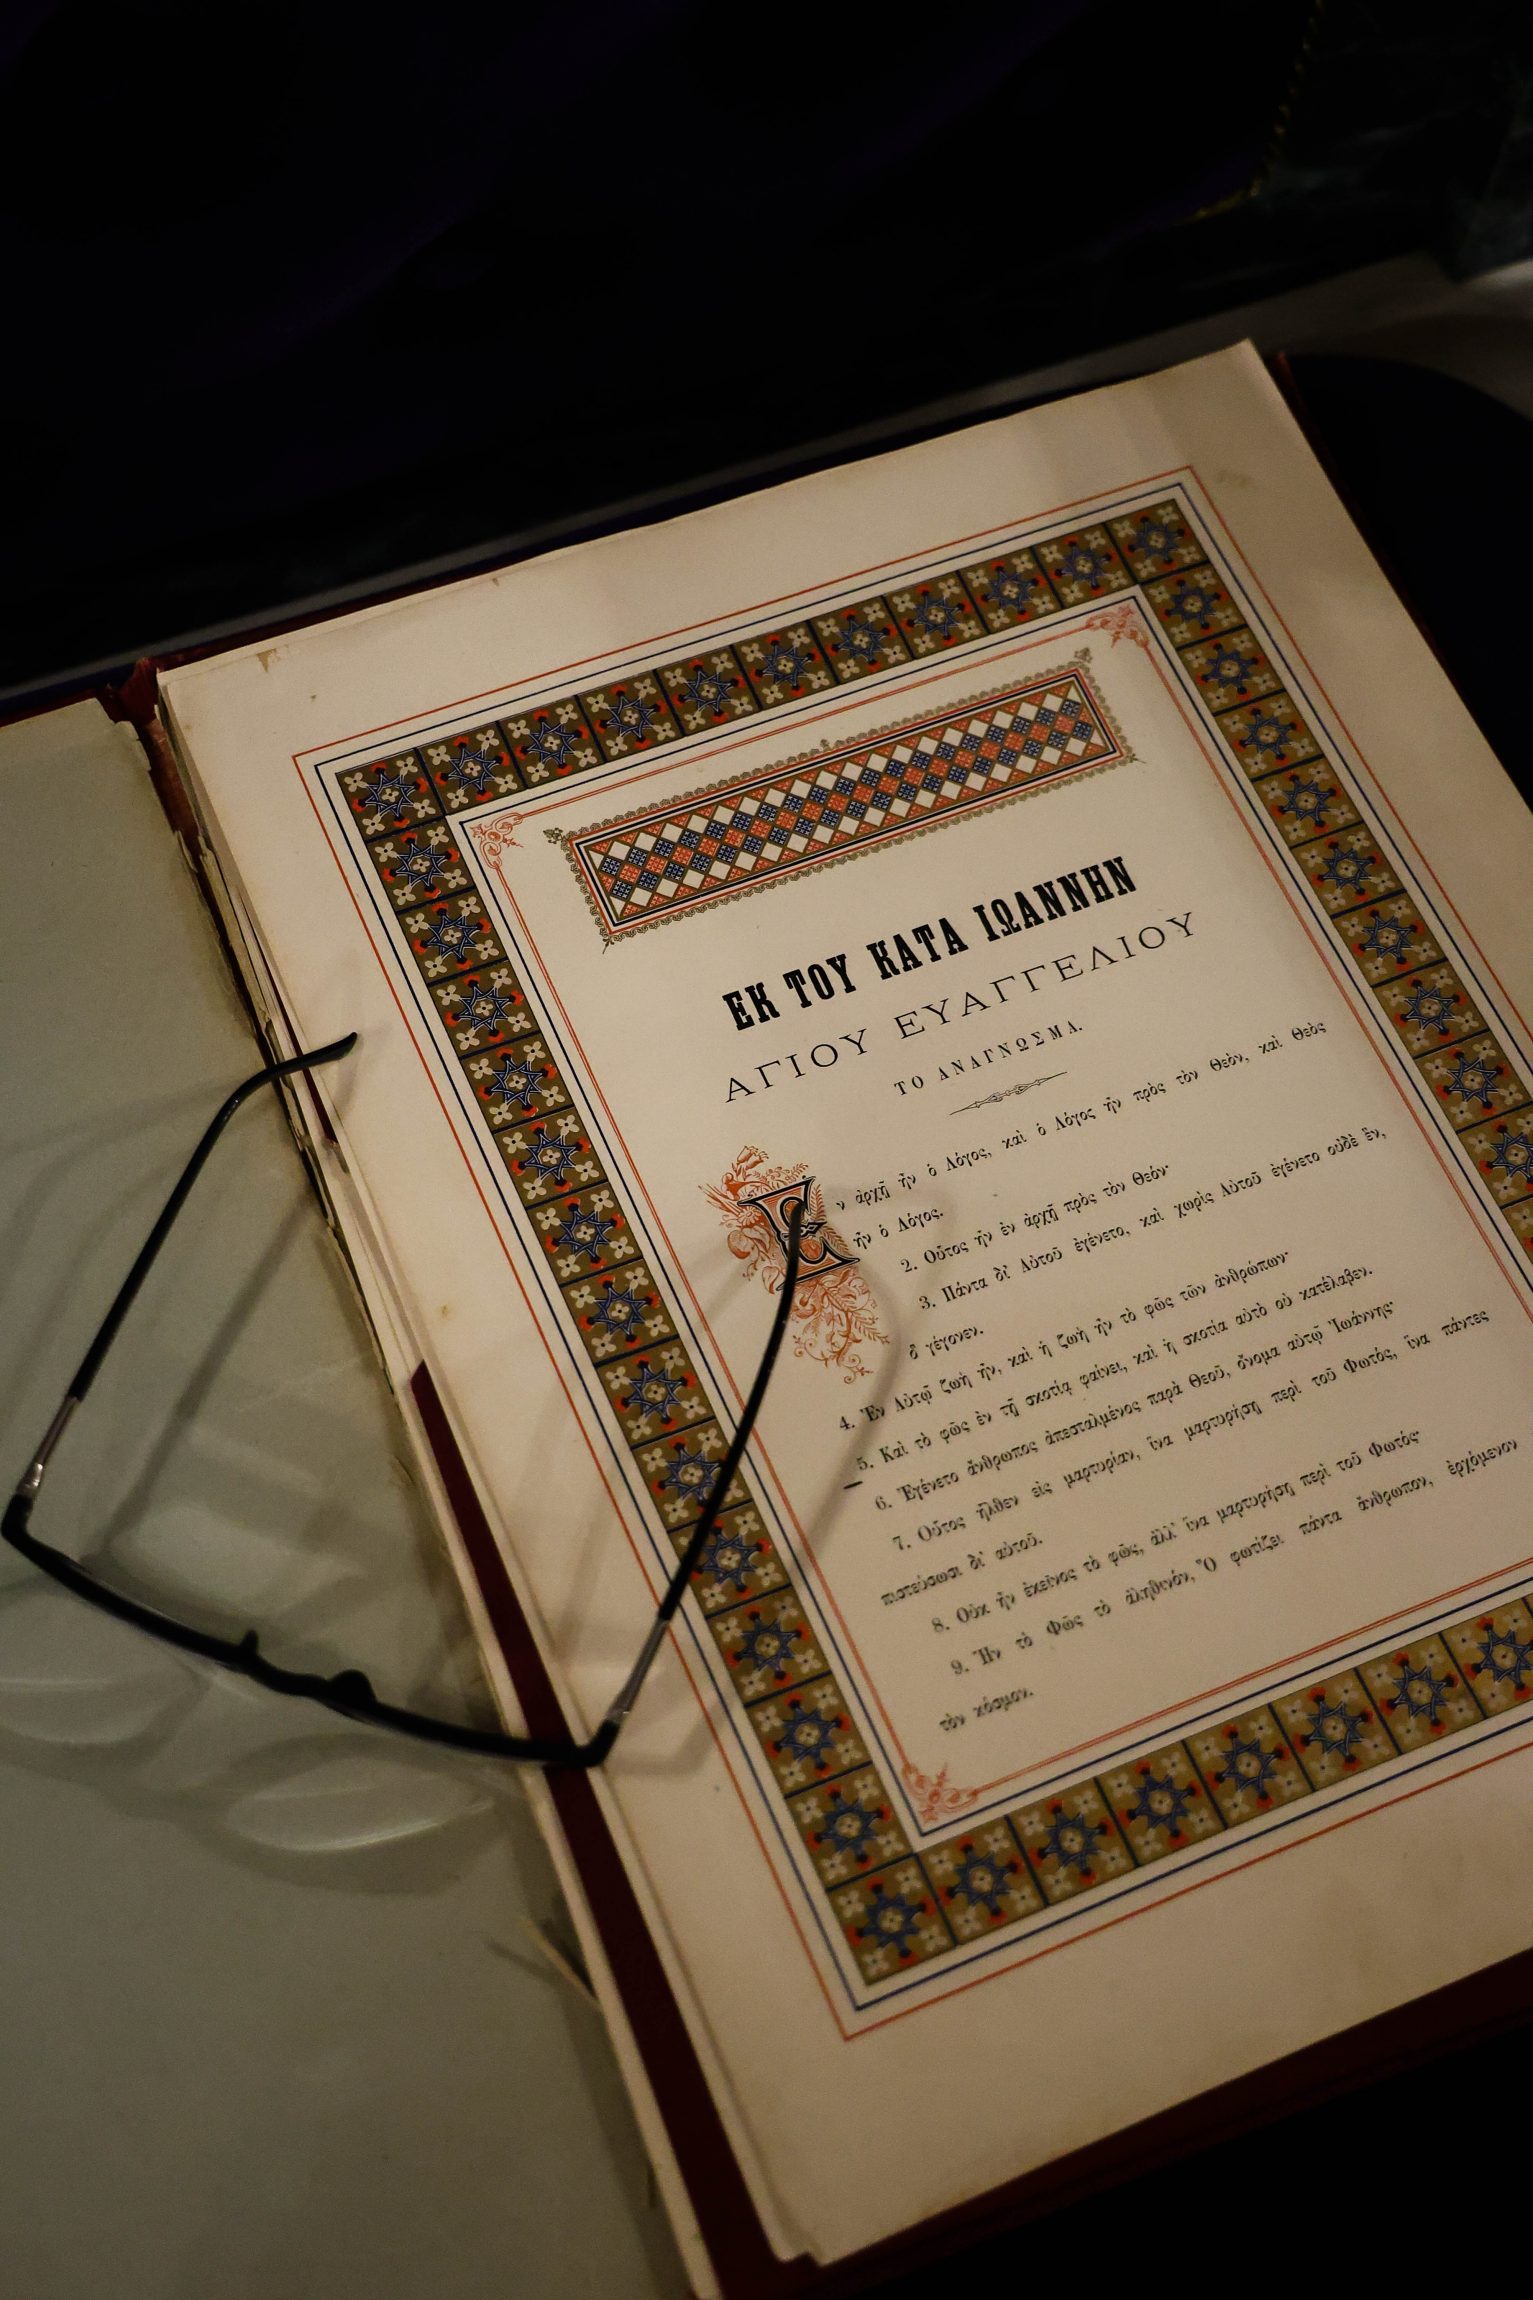 ΕΚ ΤΟΥ ΚΑΤΑ ΙΩΑΝΝΗΝ
ΑΓΙΟΥ ΕΥΑΓΓΕΛΙΟΥ
ΤΟ ΑΝΑΓΝΩΣΜΑ.
Ἐν ἀρχῇ ἦν ὁ Λόγος, καὶ ὁ Λόγος ἦν πρὸς τὸν Θεὸν, καὶ Θεὸς
ἦν ὁ Λόγος.
2. Οὗτος ἦν ἐν ἀρχῇ πρὸς τὸν Θεόν·
3. Πάντα δι' Αὐτοῦ ἐγένετο, καὶ χωρὶς Αὐτοῦ ἐγένετο οὐδὲ ἓν,
ὃ γέγονεν.
4. Ἐν Αὐτῷ ζωὴ ἦν, καὶ ἡ ζωὴ ἦν τὸ φῶς τῶν ἀνθρώπων·
5. Καὶ τὸ φῶς ἐν τῇ σκοτίᾳ φαίνει, καὶ ἡ σκοτία αὐτὸ οὐ κατέλαβεν.
6. Ἐγένετο ἄνθρωπος ἀπεσταλμένος παρὰ Θεοῦ, ὄνομα αὐτῷ Ἰωάννης·
7. Οὗτος ἦλθεν εἰς μαρτυρίαν, ἵνα μαρτυρήσῃ περὶ τοῦ Φωτός, ἵνα πάντες
πιστεύσωσι δι' αὐτοῦ.
8. Οὐκ ἦν ἐκεῖνος τὸ φῶς, ἀλλ' ἵνα μαρτυρήσῃ περὶ τοῦ Φωτός·
9. Ἦν τὸ Φῶς τὸ ἀληθινόν, Ὃ φωτίζει πάντα ἄνθρωπον, ἐρχόμενον
τὸν κόσμον.